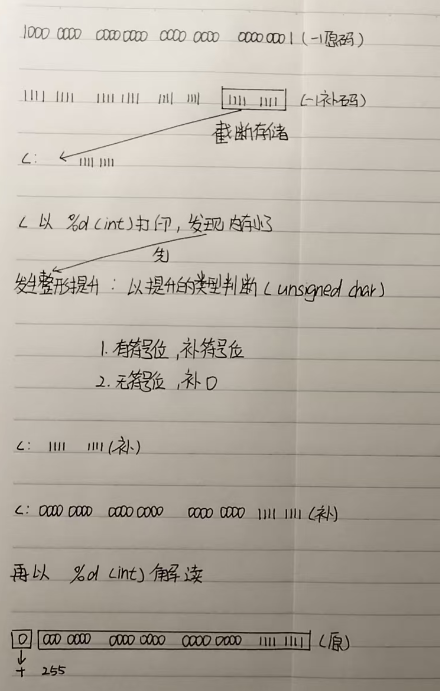 1000 0000 0000 0000 0000 0000 0000 0001 (-1原码)
1111 1111 1111 1111 1111 1111 1111 1111 (-1补码)
截断存储
c: 1111 1111
c 以 %d (int)打印,发现内存小了
先
发生整形提升:以提升的类型判断(unsigned char)
1. 有符号位,补符号位
2. 无符号位,补0
c: 1111 1111(补)
c: 0000 0000 0000 0000 0000 0000 1111 1111 (补)
再以 %d (int) 解读
0 000 0000 0000 0000 0000 0000 1111 1111 (原)
+ 255